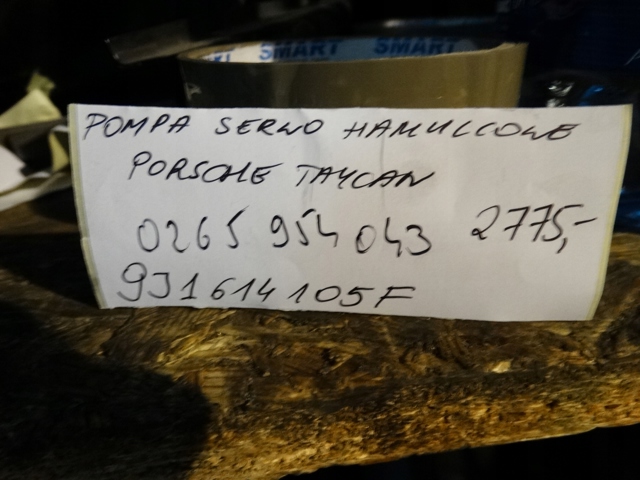 SMART SMART
POMPA SERWO HAMULCOWE
PORSCHE TAYCAN
0265 954 043 2775,-
9J1614105F